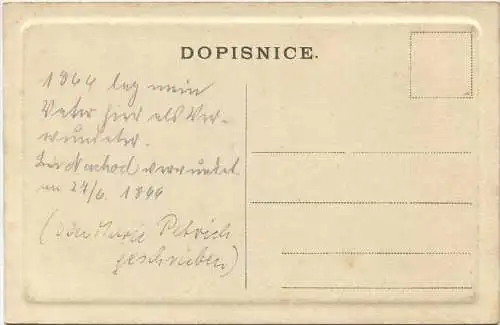 DOPISNICE.
1866 lag mein
Vater hier als Ver-
wundeter.
Bei Nachod verwundet
am 27/6. 1866
(von Marie Petrich
geschrieben)